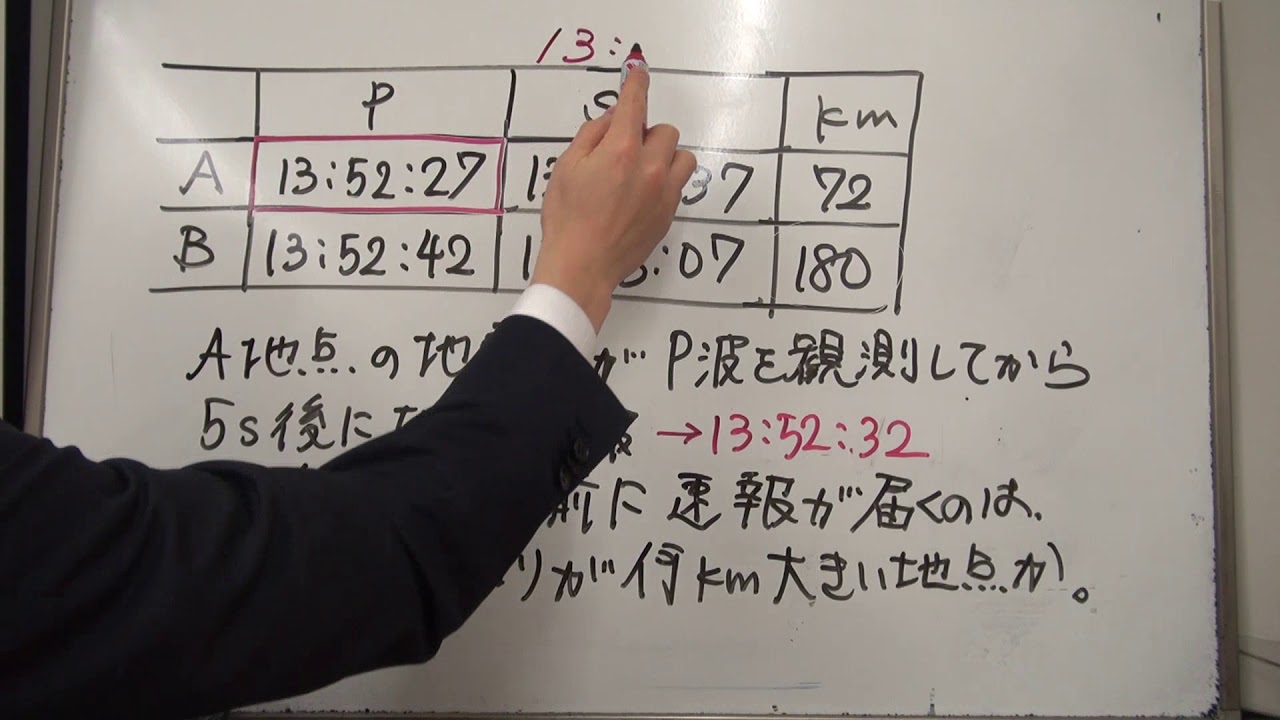 13:
P S km
A 13:52:27 13 37 72
B 13:52:42 1 :07 180
A地点の地 がP波を観測してから
5s後に →13:52:32
前に速報が届くのは、
が何km大きい地点か。